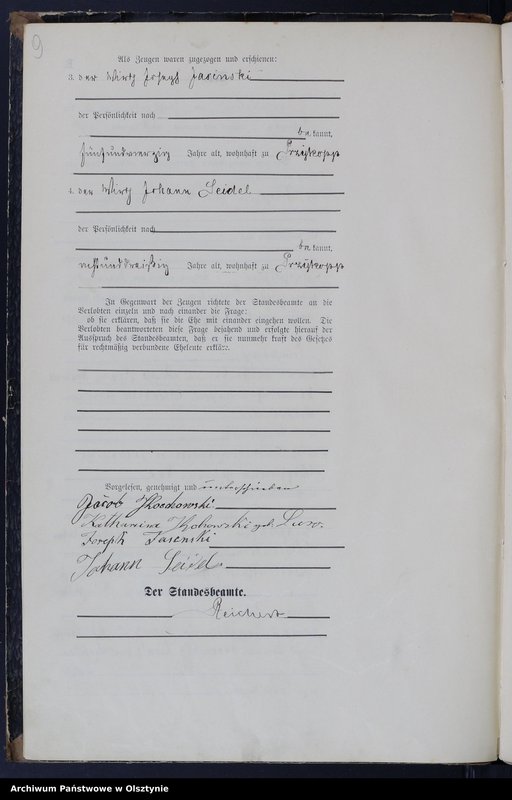 9
Als Zeugen waren zugezogen und erschienen:
3. der Wirth Joseph Jasinski
der Persönlichkeit nach
be kannt,
fünfundvierzig Jahre alt, wohnhaft zu
4. der Wirth Johann Seidel
der Persönlichkeit nach
be kannt,
Jahre alt, wohnhaft zu
In Gegenwart der Zeugen richtete der Standesbeamte an die
Verlobten einzeln und nach einander die Frage:
ob sie erklären, daß sie die Ehe mit einander eingehen wollen. Die
Verlobten beantworteten diese Frage bejahend und erfolgte hierauf der
Ausspruch des Standesbeamten, daß er sie nunmehr kraft des Gesetzes
für rechtmäßig verbundene Eheleute erkläre.
Vorgelesen, genehmigt und unterschrieben
Jacob
Katharina geb.
Joseph Jasenski
Johann Seidel
Der Standesbeamte.
Reichert
Archiwum Państwowe w Olsztynie